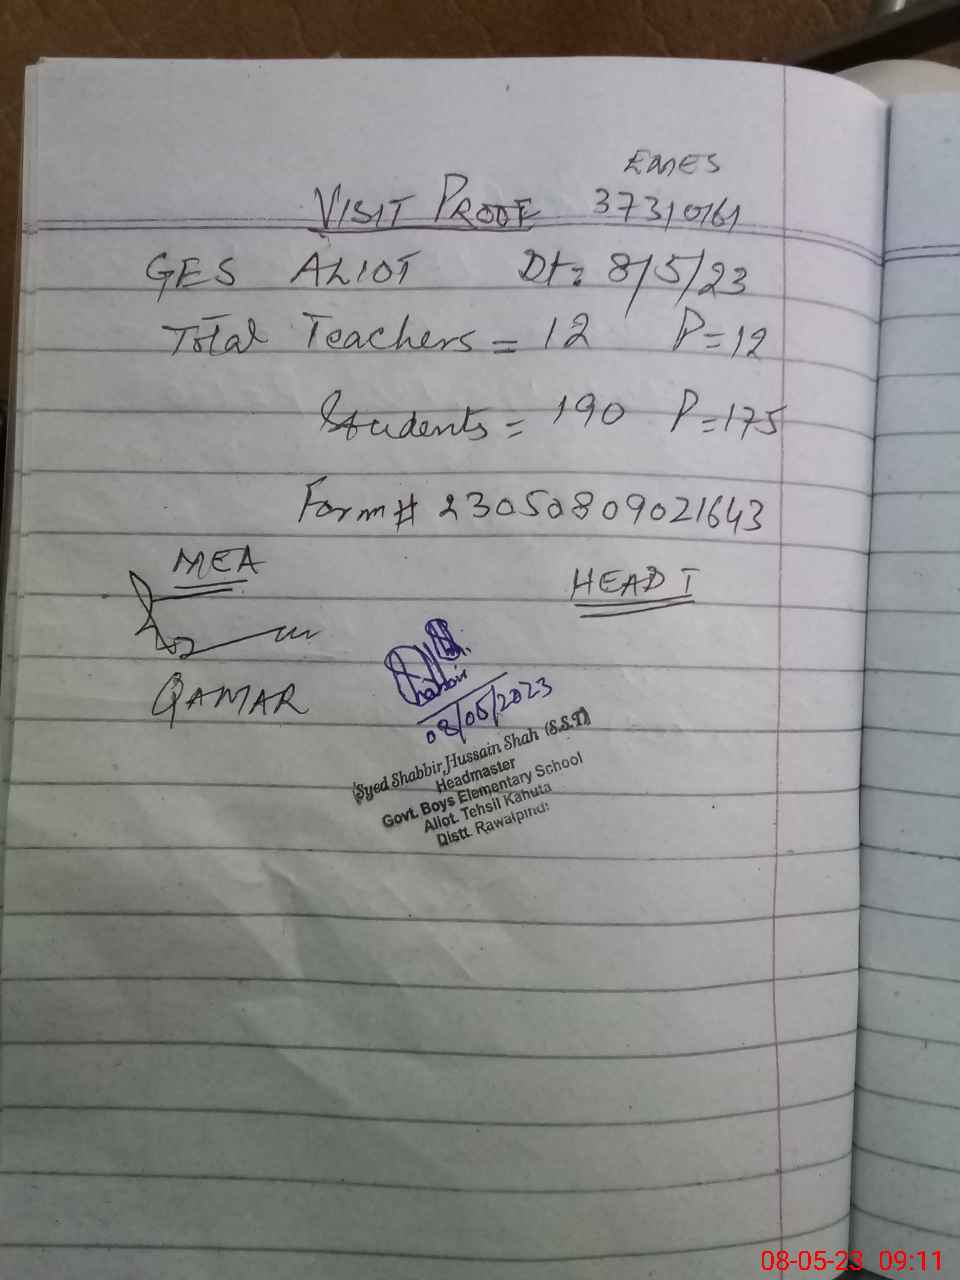 EMES
VISIT PROOF 37310161
GES ALIOT Dt: 8/5/23
Total Teachers = 12 P=12
Students = 190 P=175
Form# 23050809021643
MEA
HEAD T
QAMAR
Shabbir
08/05/2023
Syed Shabbir Hussain Shah (S.S.T)
Headmaster
Govt. Boys Elementary School
Aliot. Tehsil Kahuta
Distt. Rawalpindi
08-05-23 09:11